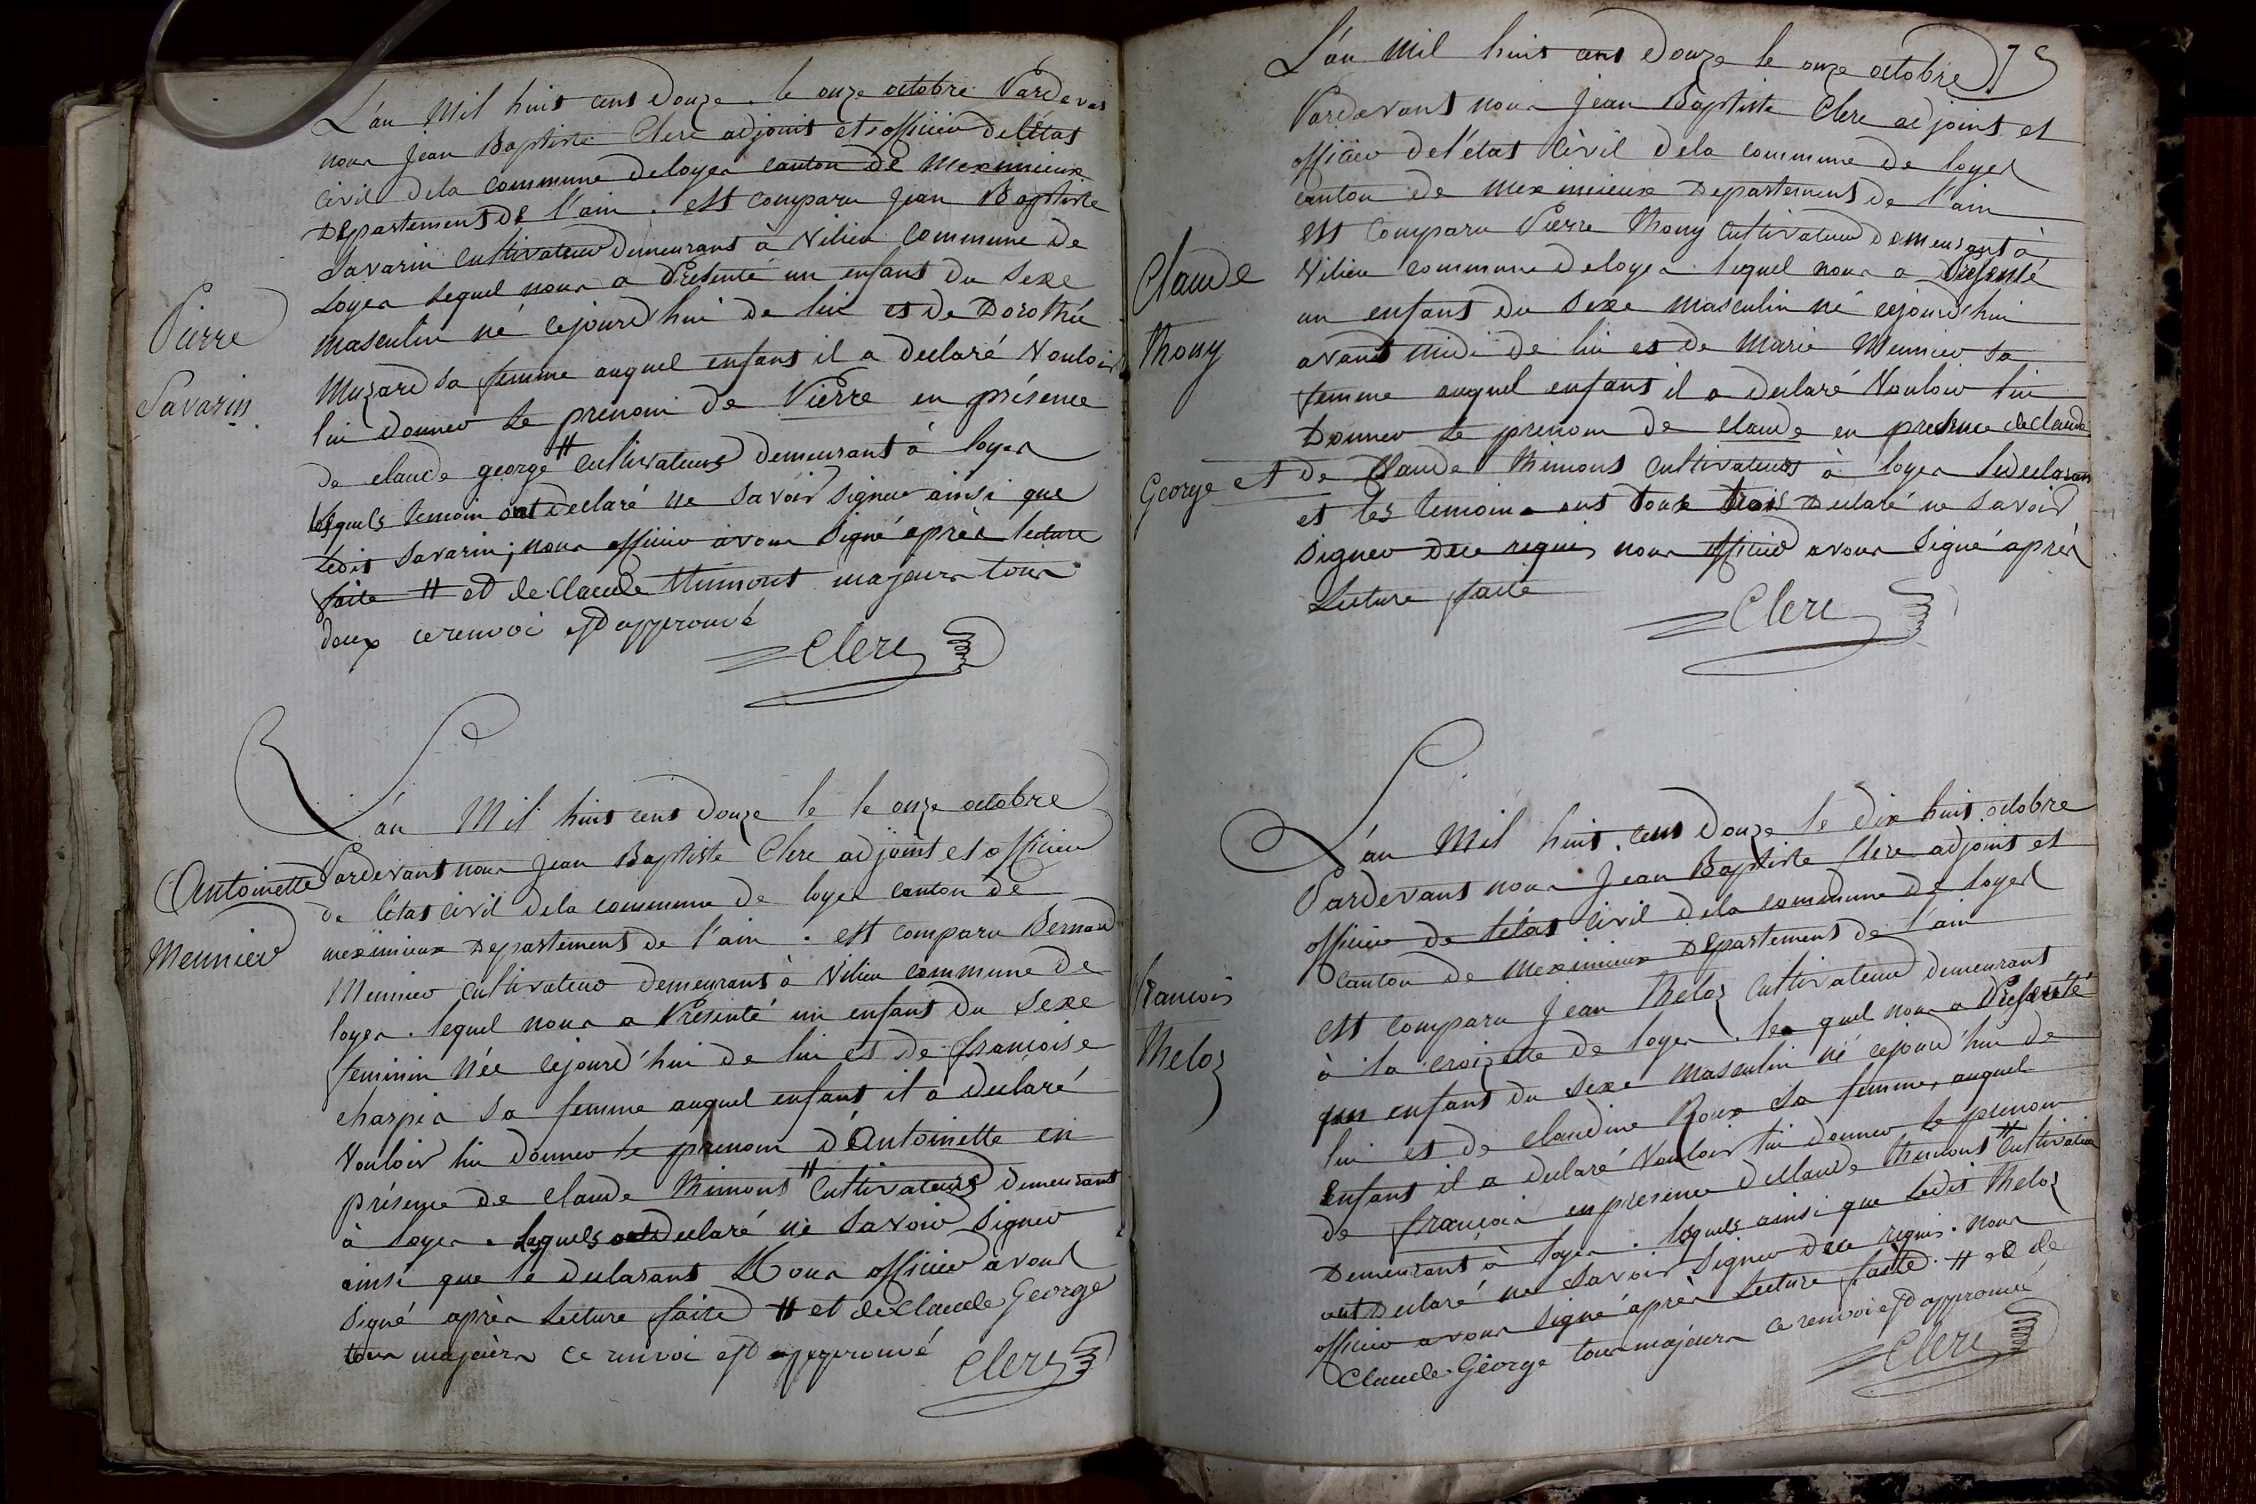 L'an Mil huit cent Douze. le onze octobre Pardevant
nous Jean Baptiste Clerc adjoint et officier de l'état
civil dela commune deloyes canton de meximieux
Departement de l'ain. est comparu Jean Baptiste
Savarin Cultivateur Demeurant à Vilieu Commune De
Loyes Lequel nous a Présenté un enfant Du Sexe
masculin né cejourd'hui De lui et De Dorothée
Pierre
Muzard sa femme auquel enfant il a declaré Vouloir
Savarin
lui donner Le prenom De Pierre en présence
De claude george # cultivateurs Demeurant à loyes
lesquels temoin ont declaré ne Savoir Signer ainsi que
Ledit Savarin; nous officier avons Signé après lecture
faite # et de Claude thimont majeurs tous
deux ce renvoi est approuvé
Clerc
L'an Mil huit cent Douze le le onze octobre
Antoinette
Pardevant nous Jean Baptiste Clerc adjoint et officier
De l'état civil dela commune De loyes canton de
Meunier
meximieux Departement de l'ain. est comparu Bernard
Meunier Cultivateur Demeurant à Vilieu commune De
loyes. lequel nous a Présenté un enfant Du Sexe
feminin Née cejourd'hui de lui et de françoise
charpis Sa femme auquel enfant il a declaré
Vouloir lui Donner Le prenom d'Antoinette en
présence de claude thimont # Cultivateurs Demeurant
à loyes. Lesquels ont declaré ne Savoir Signer
ainsi que le declarant Nous officier avons
Signé après Lecture faite # et de Claude George
tous majeurs ce renvoi est approuvé
Clerc
L'an Mil huit cent Douze le onze octobre 75
Pardevant nous Jean Baptiste Clerc adjoint et
officier de l'état Civil Dela commune De loyes
canton de meximieux Departement De l'ain
Est comparu Pierre thony Cultivateur Demeurant à
Claude
Vilieu commune Deloyes lequel nous a Présenté
un enfant du Sexe masculin né cejourd'hui
thony
avant midi De lui et de Marie Meunier Sa
femme auquel enfant il a declaré Vouloir lui
Donner Le prenom De claude en presence de claude
George et de Claude thimont cultivateurs à loyes Le declarant
et les temoins ont tous trois Declaré ne Savoir
Signer De ce requis nous officier avons Signé après
Lecture faite
Clerc
L'an Mil huit cent Douze le Dix huit octobre
Pardevant nous Jean Baptiste Clerc adjoint et
officier de l'état Civil dela commune de loyes
Canton de meximieux Departement de l'ain
françois
est comparu Jean theloz Cultivateur demeurant
à la croizette de loyes. lequel nous a Présenté
theloz
un enfant du Sexe masculin né cejourd'hui de
lui et de claudine Roux sa femme, auquel
Enfant il a declaré Vouloir lui donner le prenom
de françois en presence de Claude thimont # Cultivateur
Demeurant à loyes. lesquels ainsi que Ledit theloz
ont Declaré ne Savoir Signer De ce requis. nous
officier avons Signé après Lecture faite. # et de
Claude George tous majeurs ce renvoi est approuvé
Clerc